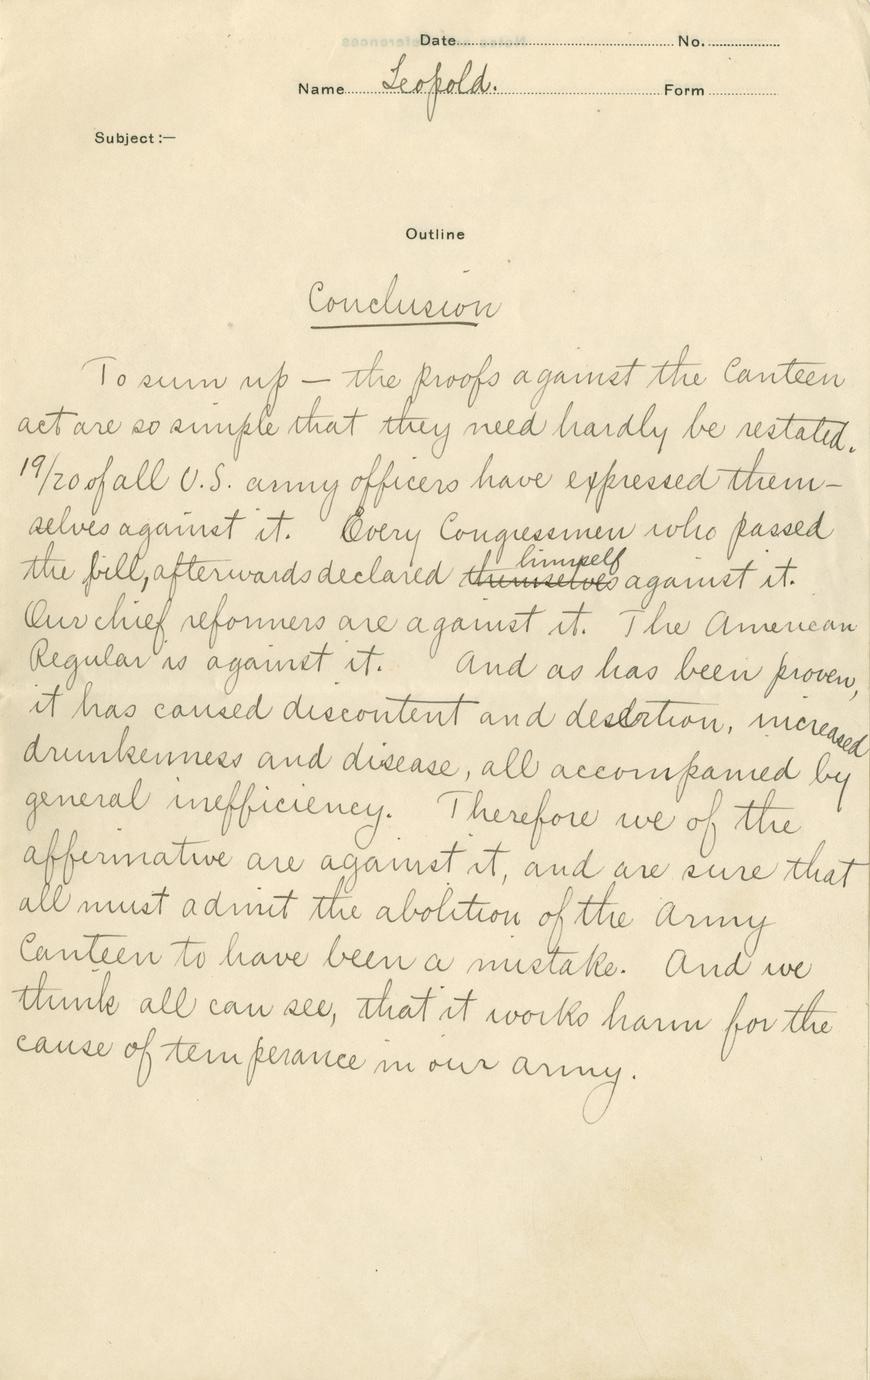 Date No.
Name Leopold. Form
Subject :—
Outline
Conclusion
To sum up — the proofs against the Canteen
act are so simple that they need hardly be restated.
19/20 of all U.S. army officers have expressed them-
selves against it. Every Congressmen who passed
the bill, afterwards declared themselves himself against it.
Our chief reformers are against it. The American
Regular is against it. And as has been proven,
it has caused discontent and desertion, increased
drunkenness and disease, all accompanied by
general inefficiency. Therefore we of the
affirmative are against it, and are sure that
all must admit the abolition of the Army
Canteen to have been a mistake. And we
think all can see, that it works harm for the
cause of temperance in our army.